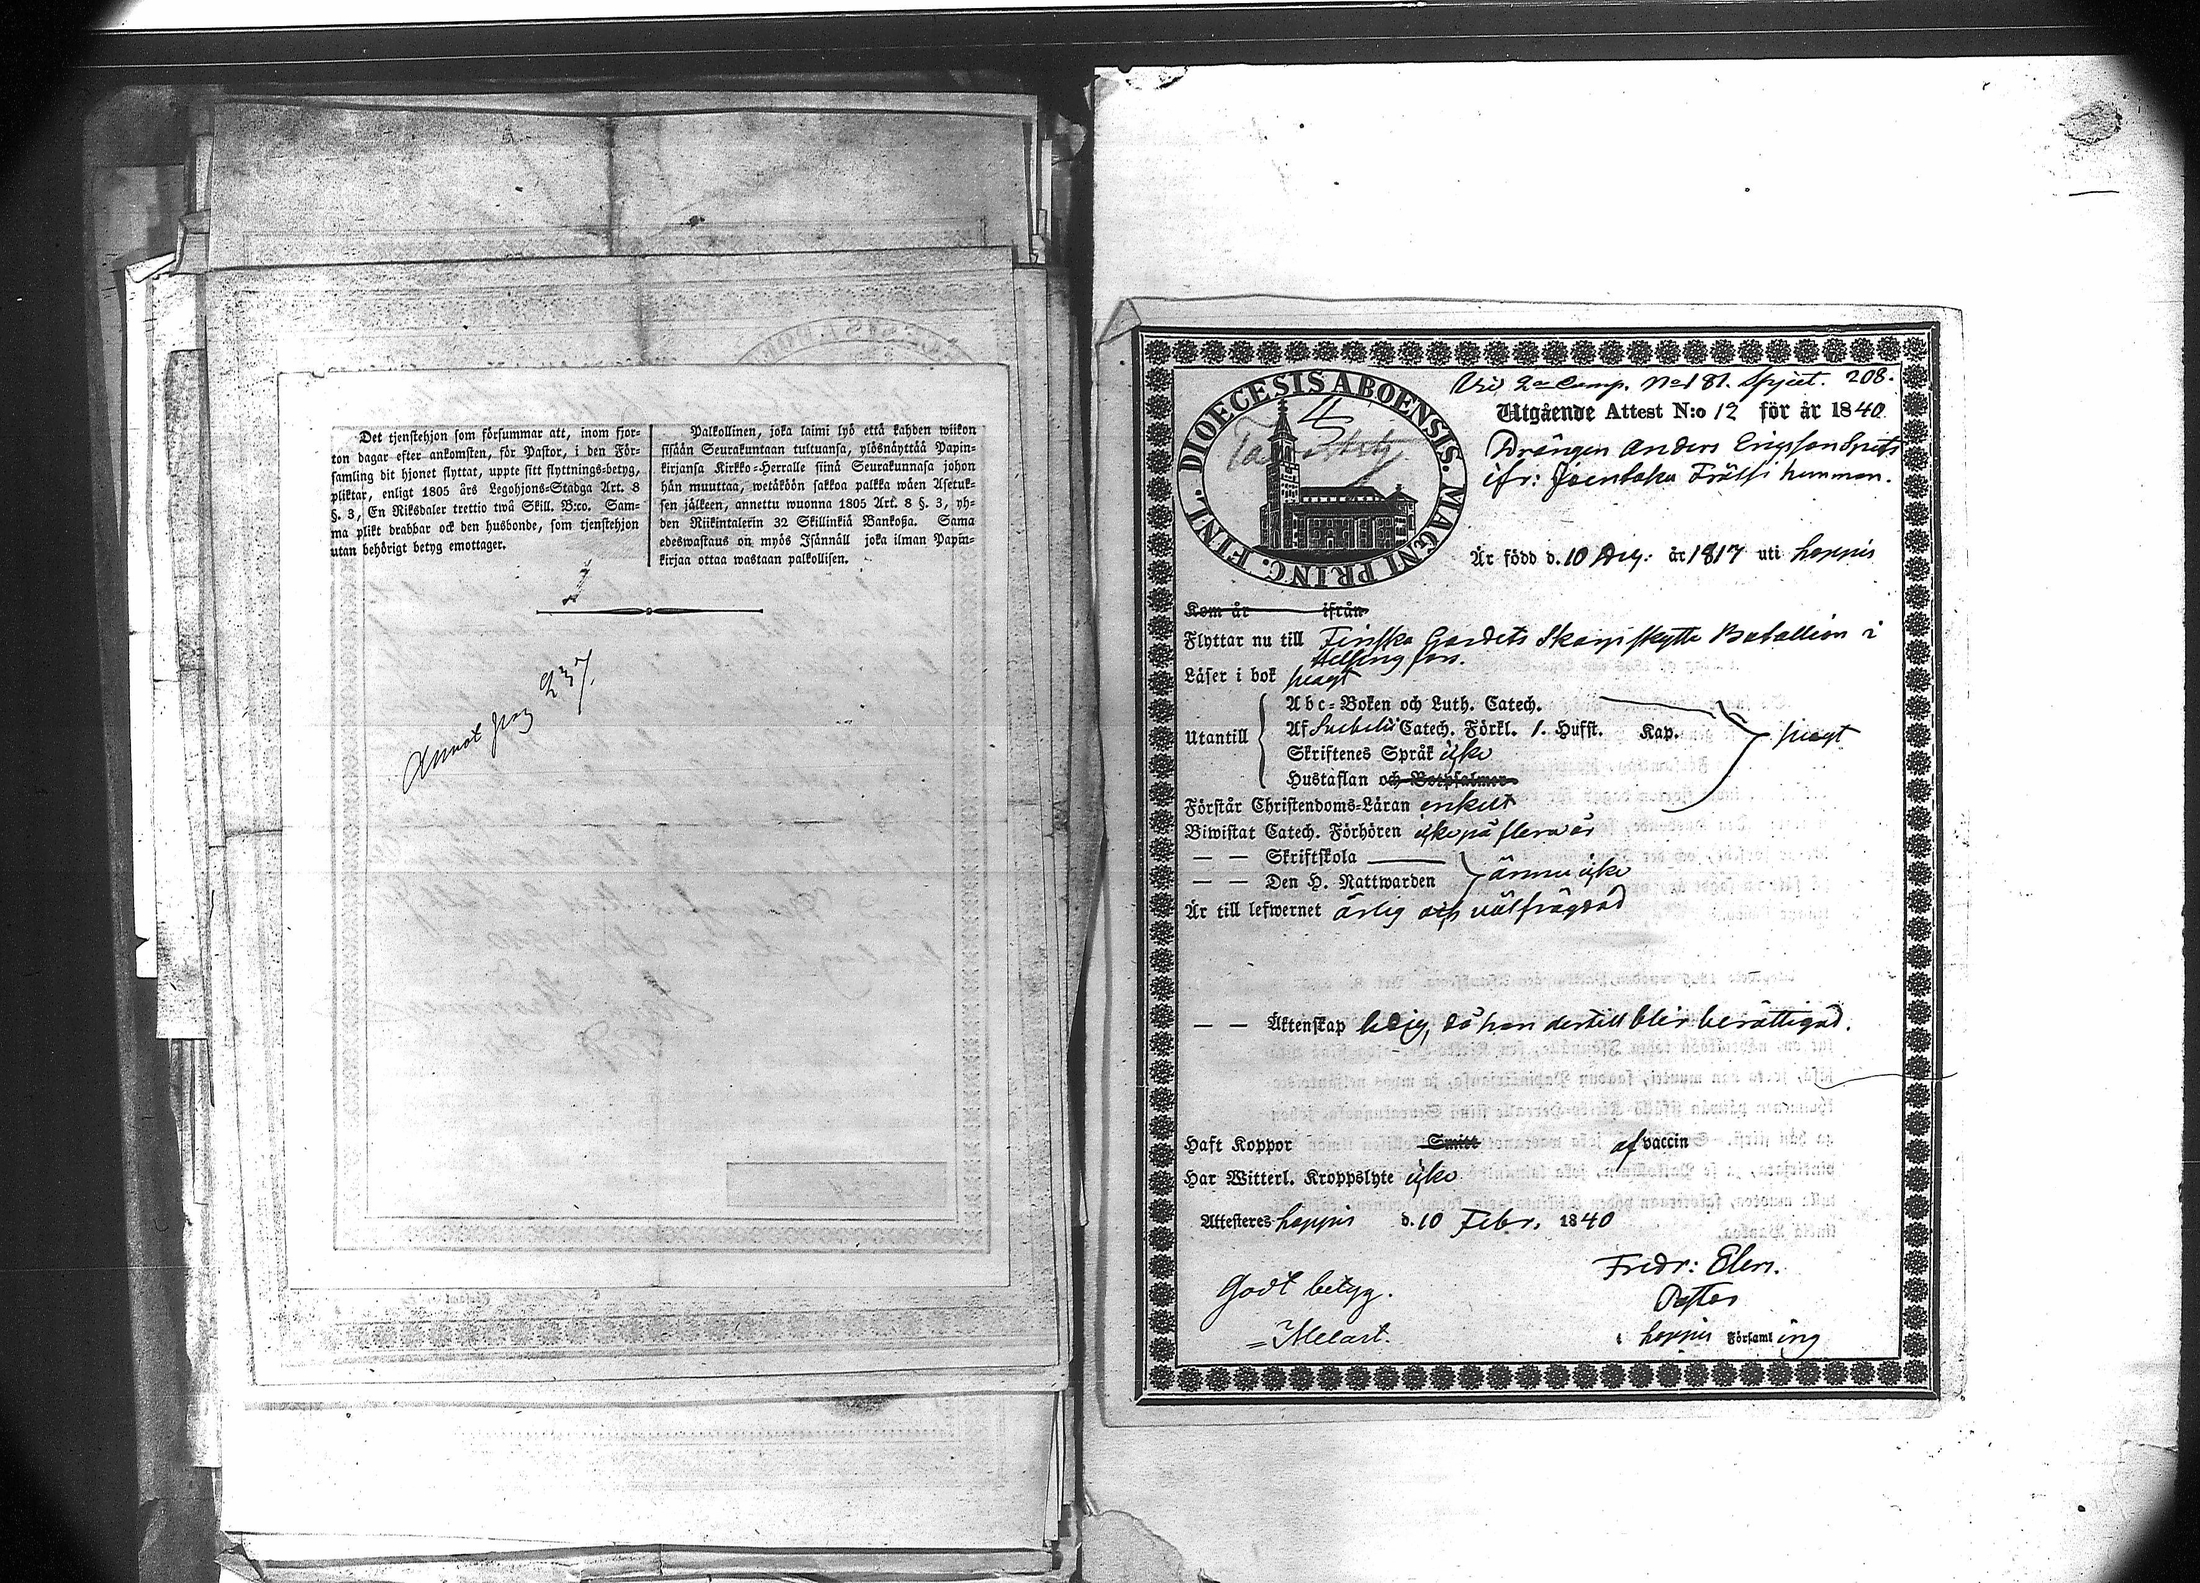 Det tjenstehjon som försummar att, inom fjor-
ton dagar efter ankomsten, för Pastor, i den För-
samling dit hjonet flyttat, uppte sitt flyttnings-betyg,
pliktar, enligt 1805 års Legohjons-Stadga Art. 8
§. 3, En Riksdaler trettio twå Skill. B:co. Sam-
ma plikt drabbar ock den husbonde, som tjenstehjon
utan behörigt betyg emottager.
Palkollinen, joka laimi lyö että kahden wiikon
sisään Seurakuntaan tultuansa, ylösnäyttää Papin-
kirjansa Kirkko-Herralle siinä Seurakunnasa johon
hän muuttaa, wetäköön sakkoa palkka wäen Asetuk-
sen jälkeen, annettu wuonna 1805 Art. 8 §. 3, yh-
den Riikintalerin 32 Skillinkiä Bankoßa. Sama
edeswastaus on myös Isännäll joka ilman Papin-
kirjaa ottaa wastaan palkollisen.
1
Annot pag 237.
DIOECESIS ABOENSIS. MAGNI PRINC. FINL.
2a Comp. No 181. 208.
Utgående Attest N:o 12 för år 1840
Drängen Anders Ericsson
ifr: Frälsi hemman.
Är född d. 10 år 1817 uti
Kom år ifrån
Flyttar nu till Finska Gardets Skarpskytte Batallion i
Helsingfors.
Läser i bok swagt
Utantill
Abc-Boken och Luth. Catech.
Af Svebelii Catech. Förkl. 1. Hufst. Kap. swagt
Skriftenes Språk icke
Hustaflan och Botpsalmer
Förstår Christendoms-Läran enkelt
Biwistat Catech. Förhören icke på flera år
— — Skriftskola
— — Den H. Nattwarden ännu icke
Är till lefwernet ärlig och välfrägdad
— — Äktenskap ledig, då han dertill blir berättigad.
Haft Koppor Smitt af vaccin
Har Witterl. Kroppslyte icke
Attesteres d. 10 Febr. 1840
Fredr: Elers.
Pastor
Godt betyg.
Melart.
i Församling